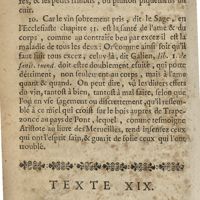 res, & les petits
10. Car le vin sobrement pris, dit le Sage, en
l'Ecclesiaste chapitre 31. est la santé de l'ame & du
corps, comme au contraire beu par excez il est la
maladie de tous les deux: Or comme ainsi soit qu'il
faut fuir tous excez, celuy-là, dit Galien, lib. 1. de
sanit. tuend. doit estre doublement esuité, qui porte
détriment, non seulement au corps, mais à l'ame
quant & quand. On peut dire, veu les diuers effets
du vin, tantôt à bien, tantost à mal faire, selon que
l'on en vse sagement ou discrettement, qu'il ressem-
ble à ce miel qui croist sur le bois auprés de Trape-
zonce au pays de Pont, lequel, comme tesmoigne
Aristote au liure des Merueilles, rend insensez ceux
qui ont l'esprit sain, & guarit de folie ceux qui l'ont
troublé.
TEXTE XIX.